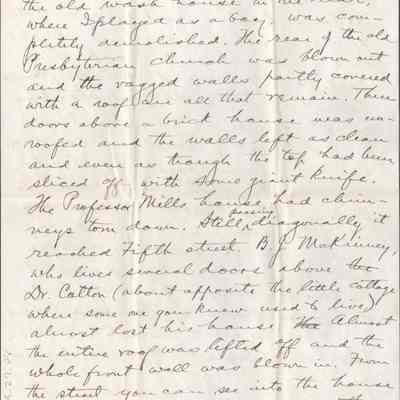 the old wash house in the rear,
where I played as a boy, was com-
pletely demolished. The rear of the old
Presbyterian Church was blown out
and the ragged walls partly covered
with a roof are all that remain. Three
doors above a brick house was un-
roofed and the walls left as clean
and even as though the top had been
sliced off with some giant knife.
The Professor Mills house had chim-
neys torn down. Still, passing diagonally it
reached Fifth street. B. J. McKinney,
who lives several doors above the
Dr. Catton (about opposite the little cottage
where some one you knew used to live)
almost lost his house the Almost
the entire roof was lifted off and the
whole front wall was blown in. From
the street you can see into the house